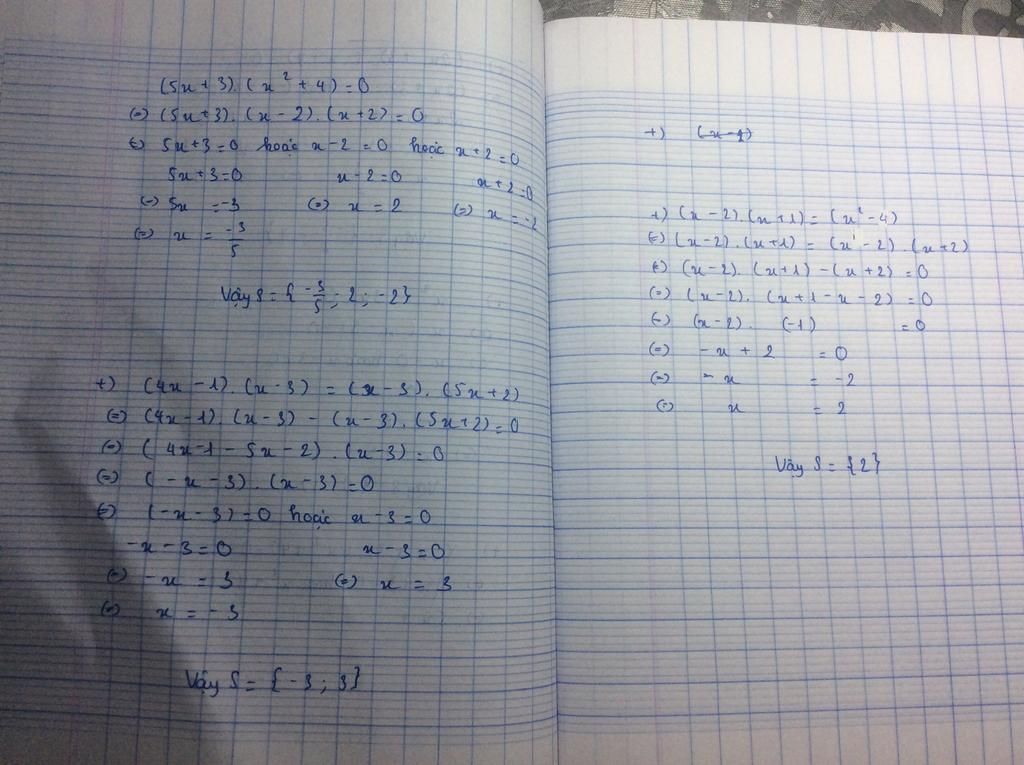 (5x + 3). (x² + 4) = 0
(=) (5x+3). (x - 2). (x + 2) = 0
(=) 5x+3 = 0 hoặc x - 2 = 0 hoặc x + 2 = 0
5x+3=0 x - 2 = 0 x + 2 = 0
(=) 5x = -3 (=) x = 2 (=) x = -2
(=) x = -3/5
Vậy S = { -3/5 ; 2 ; -2 }
+) (4x - 1). (x - 3) = (x - 3). (5x + 2)
(=) (4x - 1). (x - 3) - (x - 3). (5x + 2) = 0
(=) ( 4x - 1 - 5x - 2 ). (x - 3) = 0
(=) ( - x - 3). (x - 3) = 0
(=) (- x - 3) = 0 hoặc x - 3 = 0
-x - 3 = 0 x - 3 = 0
(=) -x = 3 (=) x = 3
(=) x = - 3
Vậy S = { -3 ; 3 }
+)
+) (x - 2). (x + 1) = (x² - 4)
(=) (x - 2). (x + 1) = (x - 2). (x + 2)
(=) (x - 2). (x + 1) - (x + 2) = 0
(=) (x - 2). (x + 1 - x - 2) = 0
(=) (x - 2). (-1) = 0
(=) - x + 2 = 0
(=) - x = -2
(=) x = 2
Vậy S = {2}